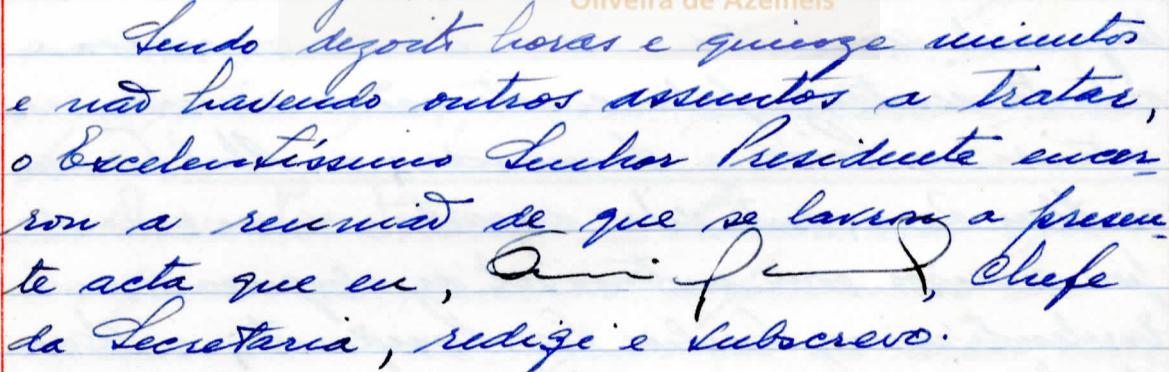 Oliveira de Azeméis
Sendo dezoito horas e quinze minutos
e não havendo outros assuntos a tratar,
o Excelentíssimo Senhor Presidente encer-
rou a reunião de que se lavrou a presen-
te acta que eu, , Chefe
da Secretaria, redigi e subscrevo.